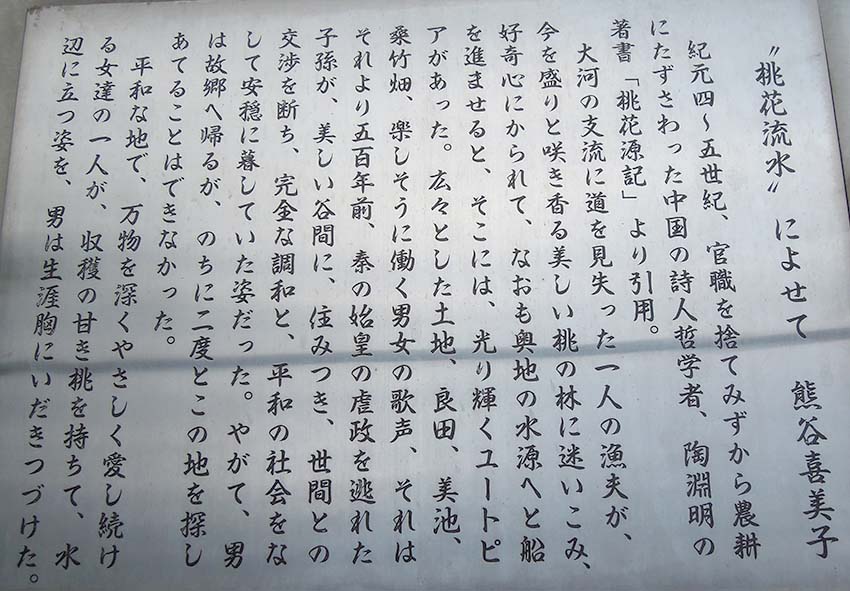 〝桃花流水〟によせて
熊谷喜美子
紀元四～五世紀、官職を捨てみずから農耕
にたずさわった中国の詩人哲学者、陶淵明の
著書「桃花源記」より引用。
大河の支流に道を見失った一人の漁夫が、
今を盛りと咲き香る美しい桃の林に迷いこみ、
好奇心にかられて、なおも奥地の水源へと船
を進ませると、そこには、光り輝くユートピ
アがあった。広々とした土地、良田、美池、
桑竹畑、楽しそうに働く男女の歌声、それは
それより五百年前、秦の始皇の虐政を逃れた
子孫が、美しい谷間に、住みつき、世間との
交渉を断ち、完全な調和と、平和の社会をな
して安穏に暮していた姿だった。やがて、男
は故郷へ帰るが、のちに二度とこの地を探し
あてることはできなかった。
平和な地で、万物を深くやさしく愛し続け
る女達の一人が、収穫の甘き桃を持ちて、水
辺に立つ姿を、男は生涯胸にいだきつづけた。